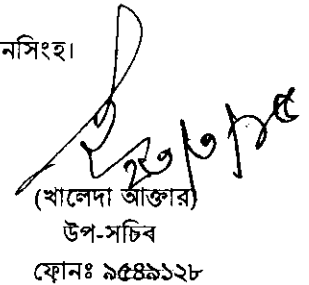 নসিংহ।
২৩/৩/১৫
(খালেদা আক্তার)
উপ-সচিব
ফোনঃ ৯৫৪৯১২৮